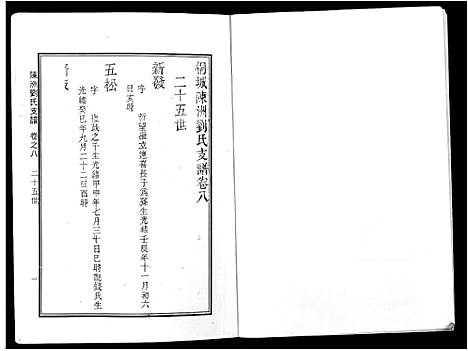 桐城陳洲劉氏支譜卷八
二十五世
新發
字 行望維立應喜長子爲嗣生光緒壬辰年十一月初六
日亥時
五松
字 應战之子生光緒甲申年七月三十日巳時配錢氏生
光緒癸巳年九月二十二日酉時
陳洲劉氏支譜 卷之八 二十五世 一